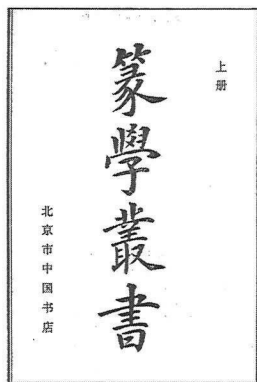 上册
篆學叢書
北京市中国书店